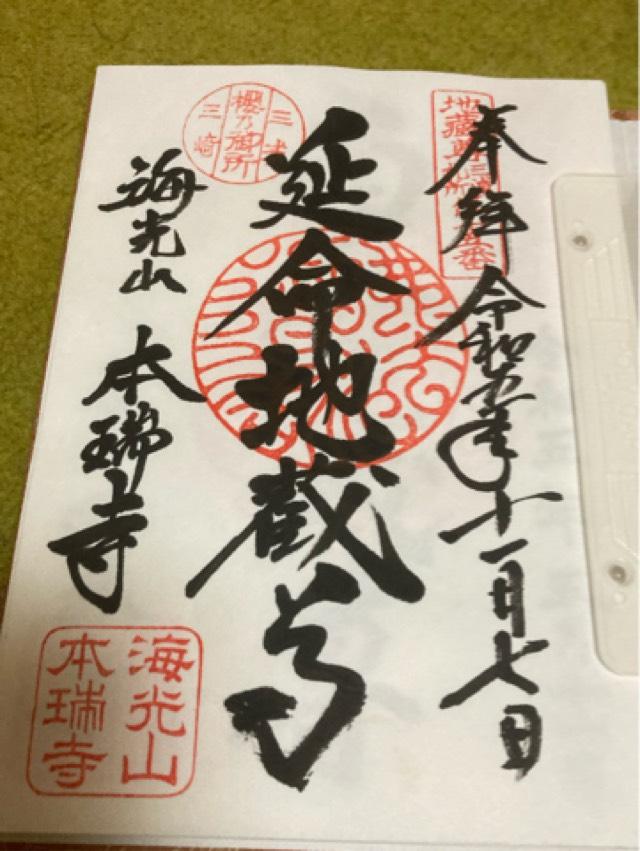 奉拝 令和五年十一月七日
延命地蔵尊
海光山 本瑞寺
三浦
櫻乃御所
三崎
海光山
本瑞寺